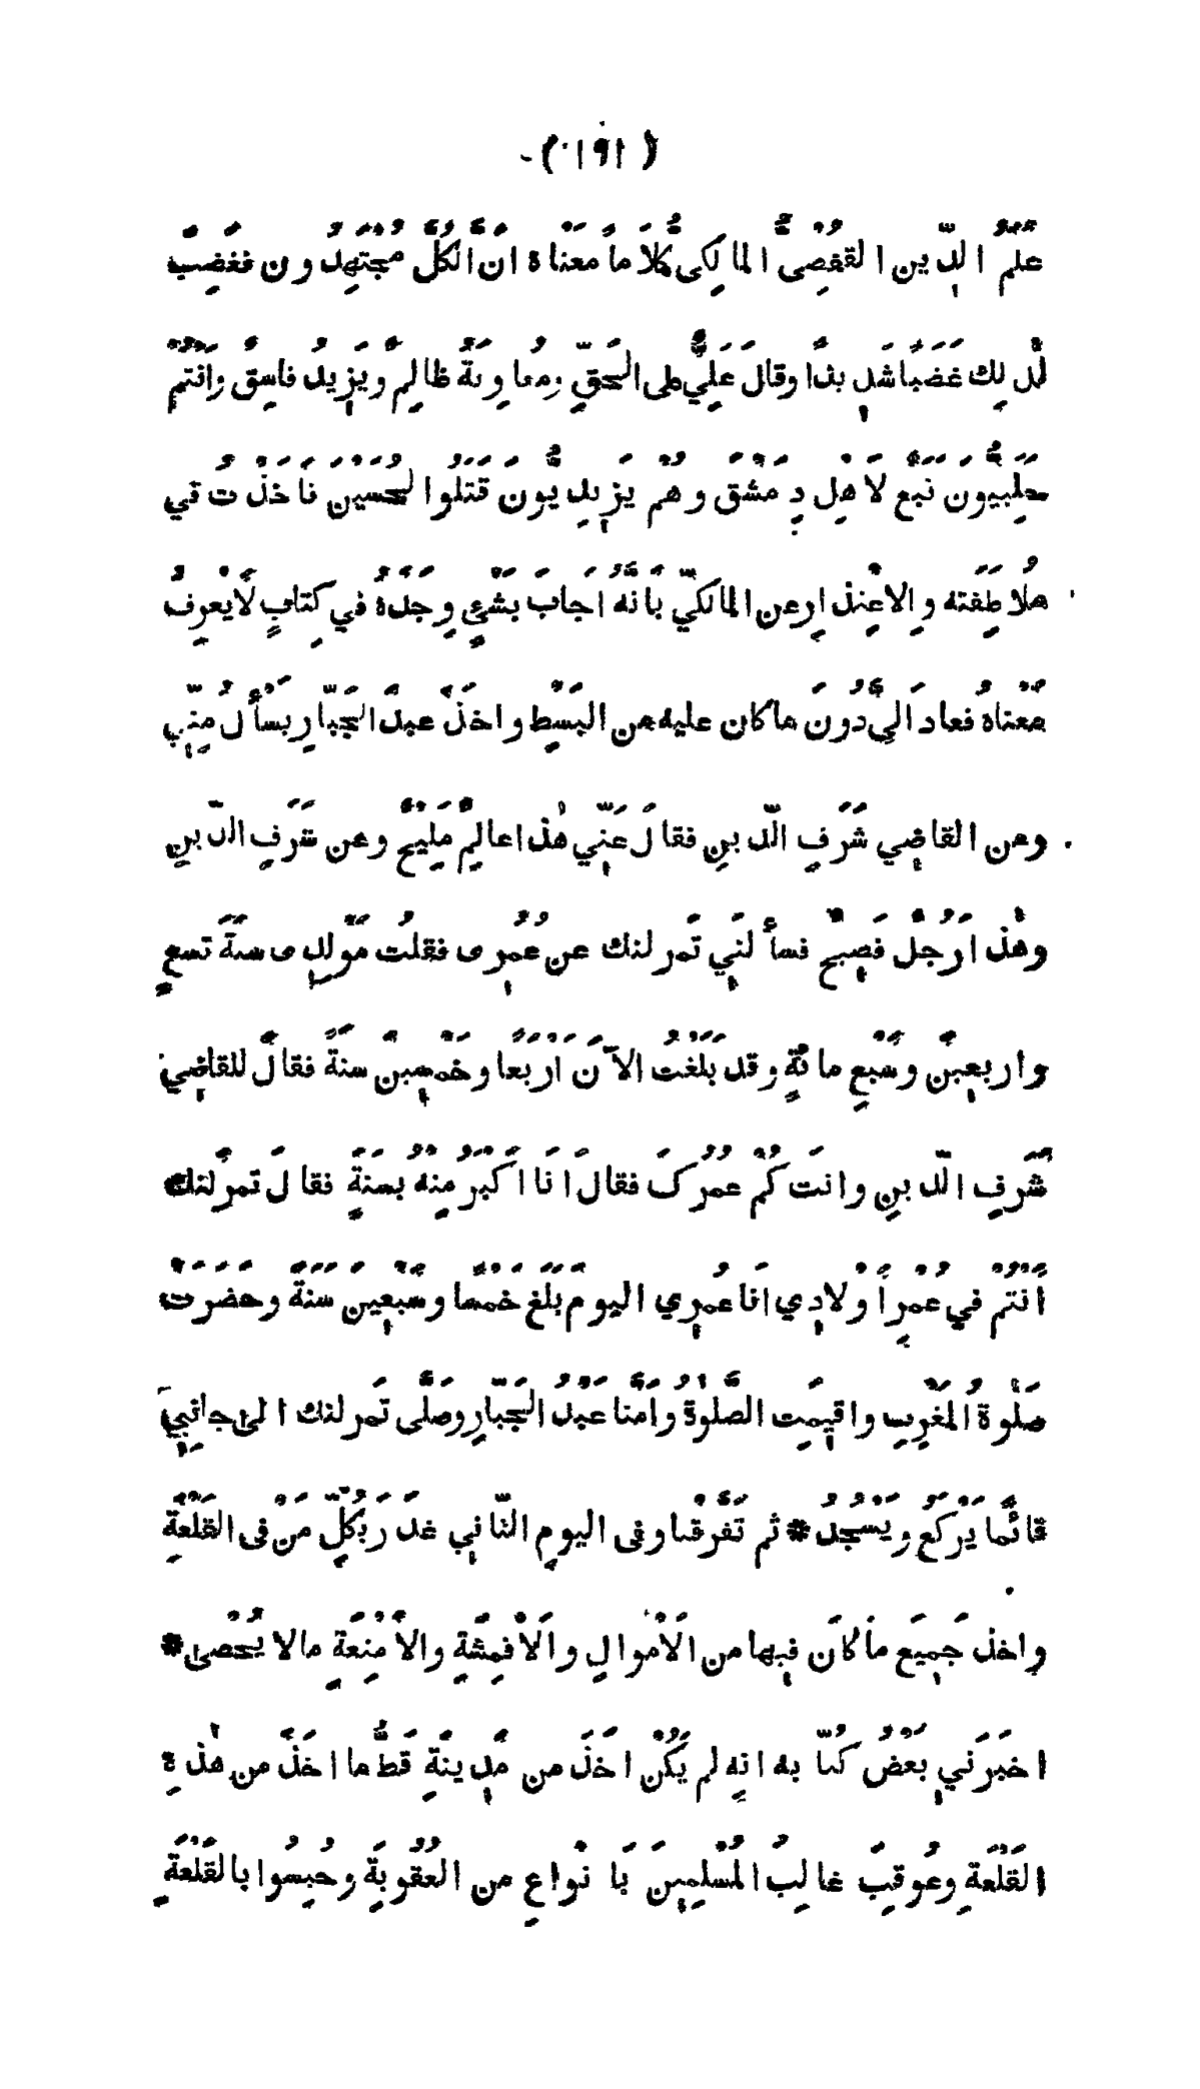 ( ١٩١ )
عَلَمُ الدّين القفصِى المالِكى كلاماً معناه ان الكُلَّ مجتهِدُون فغضِبَ
لذلِك غضَباً شدِيداً وقالَ عَلِيٌّ على الحَقِّ ومعاوِيَةُ ظالِمٌ ويَزِيدُ فاسِقٌ وانتُمْ
حلَبِيونَ تبَعٌ لاَهلِ دِمَشْقَ وهم يزِيدِيُّون قَتَلُوا الحُسَيْن فاَخَذْتُ في
مُلاطَفَتِه والاعتِذارِ عن المالكيِّ بانَّهُ اَجابَ بشَيْءٍ وجَدَهُ في كِتابٍ لا يَعرِفُ
معْناهُ فعادَ الىٰ دُونَ ما كان عليه من البَسْطِ واخذَ عبدُ الجبّارِ يسأَلُ مِنّي
ومن القاضِي شَرَفِ الدّينِ فقالَ عَنّي هٰذا عالِمٌ مَلِيحٌ وعن شَرَفِ الدّينِ
وهٰذا رَجُلٌ فَصِيحٌ فسأَلَنِي تَمرلنك عن عُمُرِى فقلتُ مَوْلِدِى سنةَ تسعٍ
واربعِينَ وسَبْعِ مائةٍ وقد بلَغْتُ الآنَ اَرْبَعا وخَمْسِينَ سَنَةً فقالَ للقاضِي
شَرَفِ الدّينِ وانتَ كمْ عمُرُكَ فقالَ اَنا اَكبَرُ مِنْهُ بسَنَةٍ فقالَ تمرلنك
اَنْتُمْ في عُمْرِ اَوْلادِي اَنا عُمُرِي اليومَ بَلَغَ خَمْسًا وسَبْعِينَ سَنَةً وحَضَرَتْ
صَلٰوةُ المَغْرِبِ واقيمَتِ الصَّلٰوةُ وامَّنا عبدُ الجَبّارِ وصَلَّى تَمرلنك الىٰ جانِبِيَ
قائمًا يَرْكَعُ ويَسْجُدُ * ثم تَفَرَّقْنا وفى اليومِ الثّانِي غدَرَ بكُلِّ مَنْ فى القَلْعَةِ
واخذَ جَمِيعَ ما كانَ فيها من الاَمْوالِ والاَقْمِشَةِ والاَمْتِعَةِ مالا يُحْصىٰ *
اخبَرَنِي بَعْضُ كُتّابِه انه لم يَكُنْ اخَذَ من مَدِينَةٍ قَطُّ ما اخَذَ من هٰذِهِ
القَلْعَةِ وعُوقِبَ غالِبُ المُسْلِمِينَ باَنْواعٍ من العُقُوبَةِ وحُبِسُوا بالقَلْعَةِ